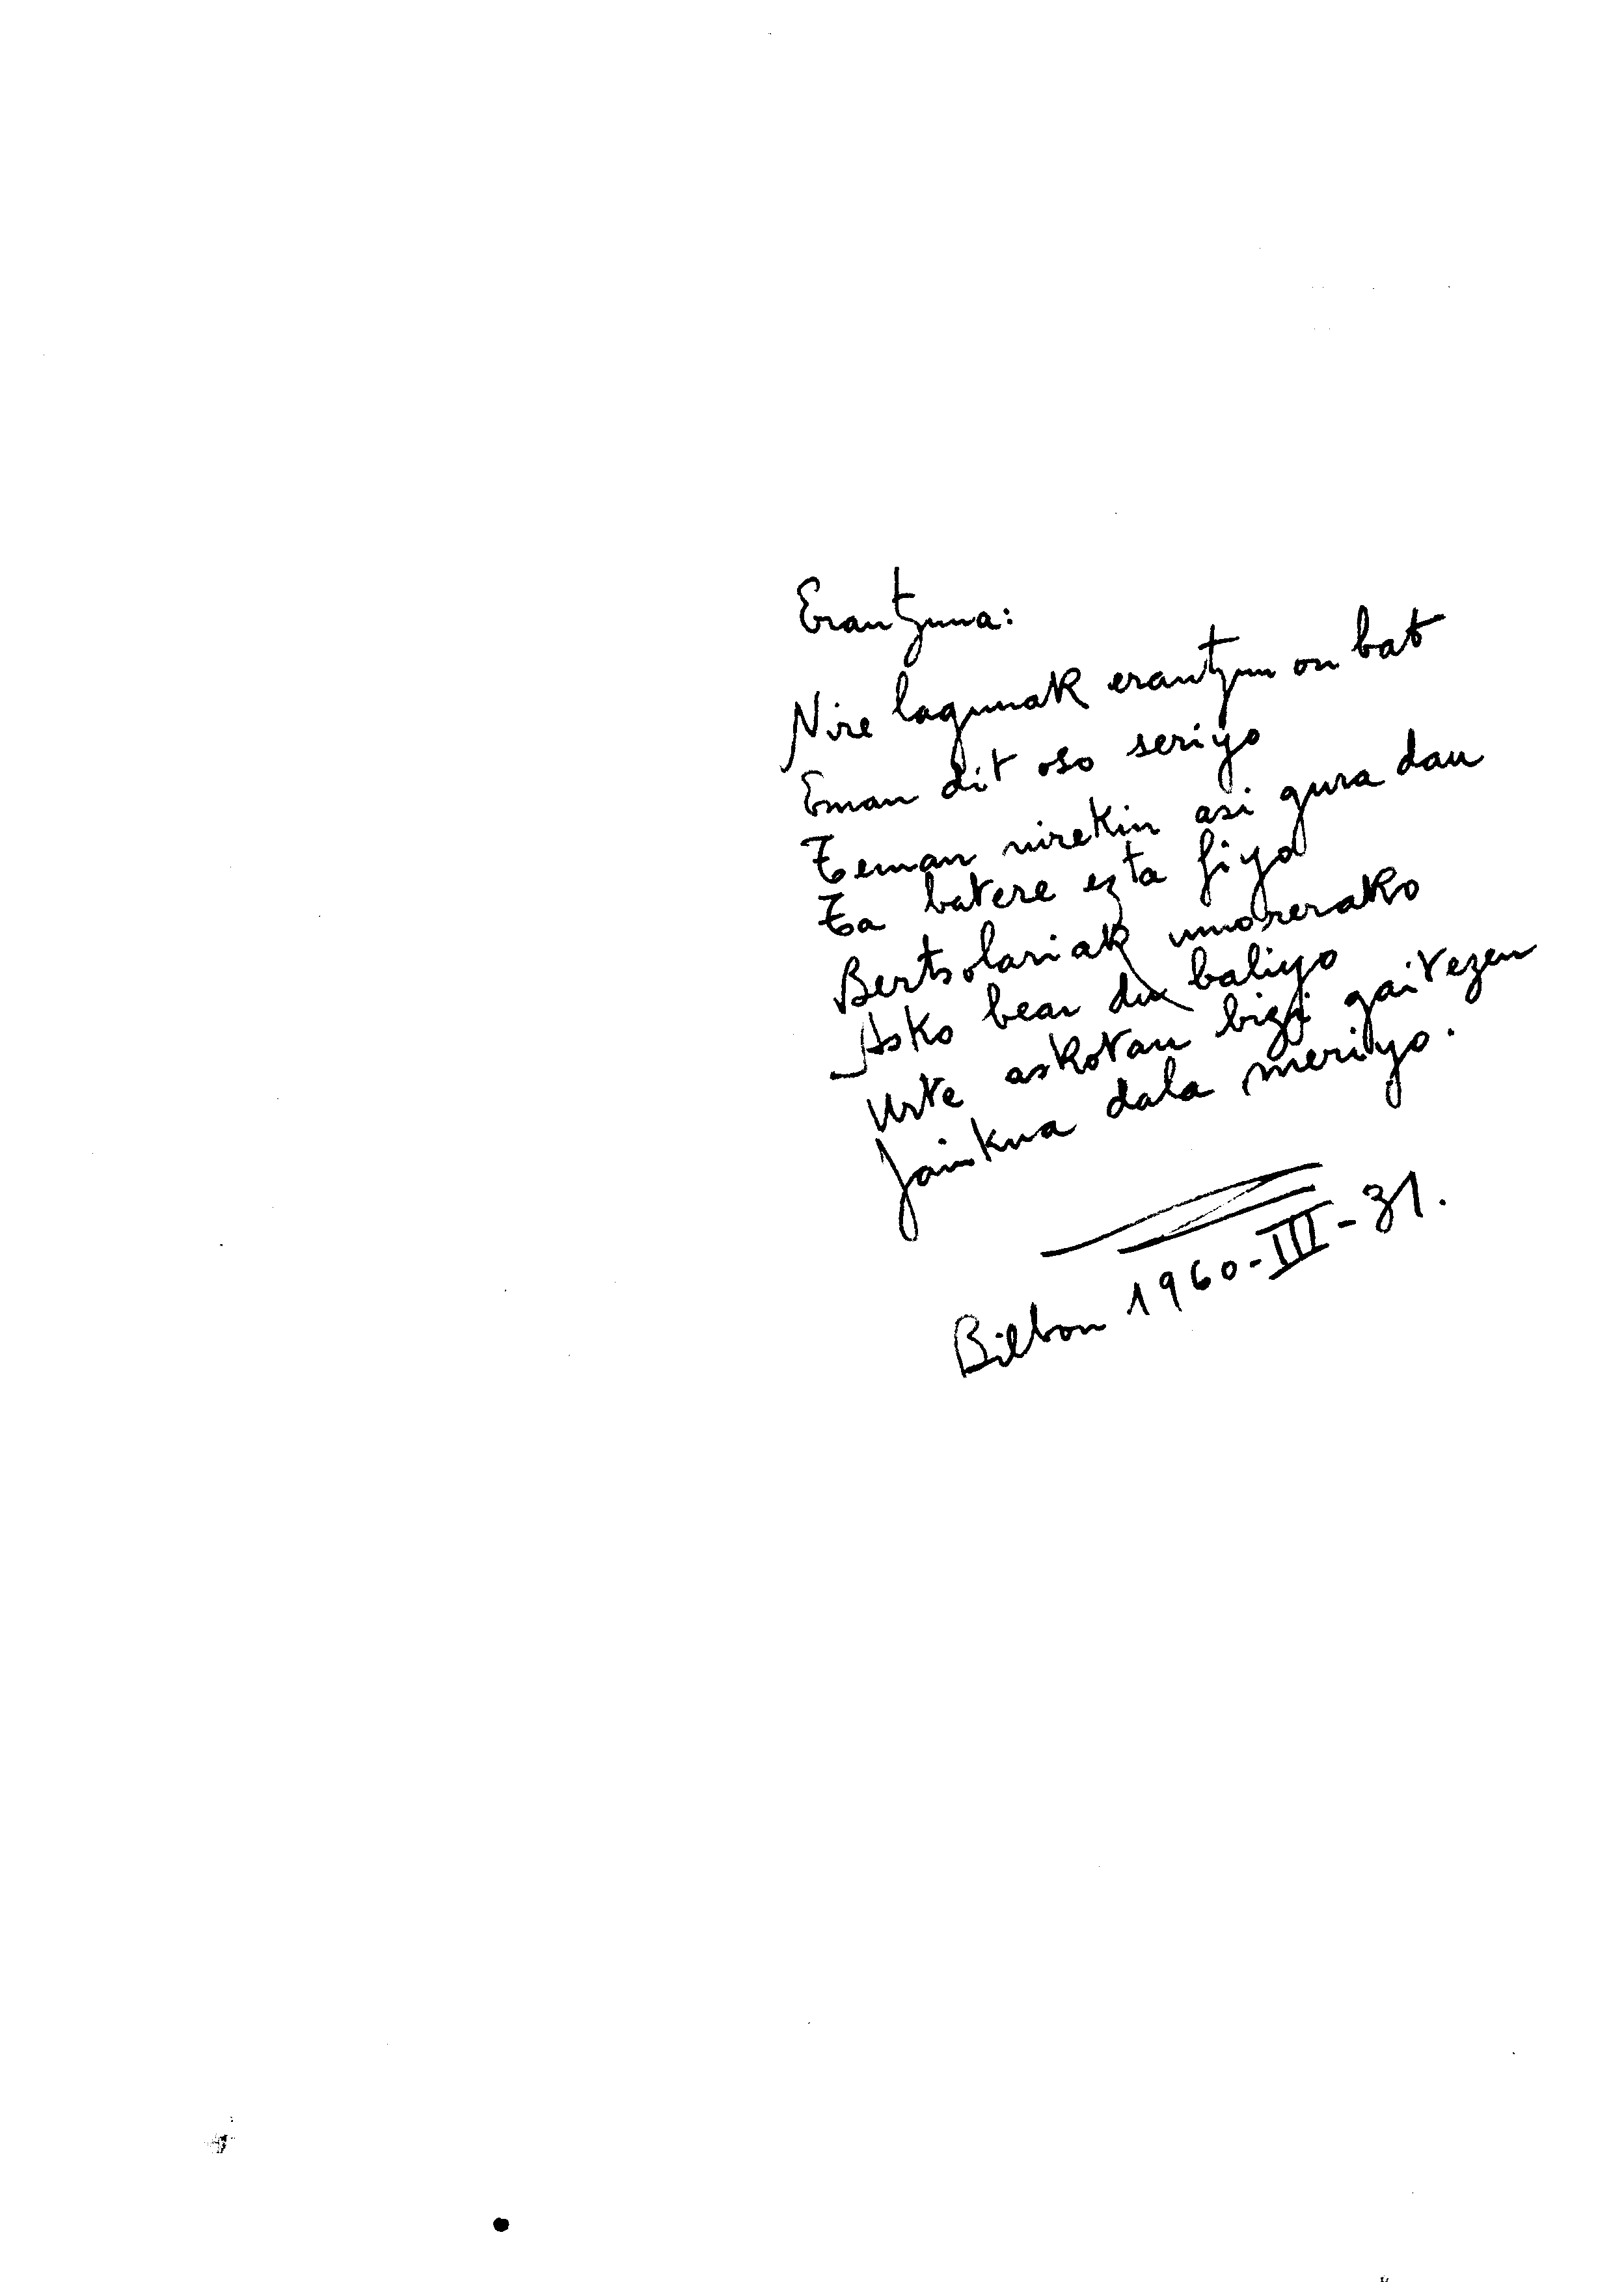 Erantzuna:
Nire lagunak erantzun on bat
Eman dit oso seriyo
Teman nirekin asi gura dau
Ta batere ezta fiyo
Bertsolariak umorerako
Asko bear du baliyo
Urte askotan bizi gaitezen
Jainkua dala meriyo.
Bilbon 1960-III-31.